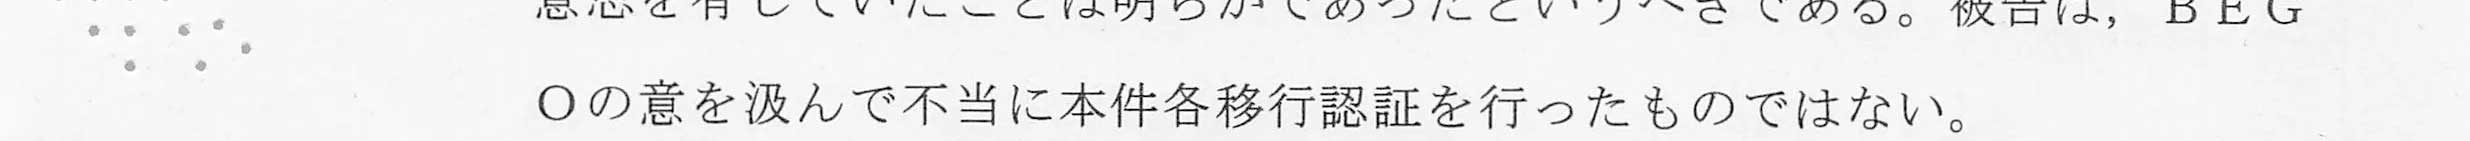 意思を有していたことは明らかであったというべきである。被告は，ＢＥＧ
Ｏの意を汲んで不当に本件各移行認証を行ったものではない。